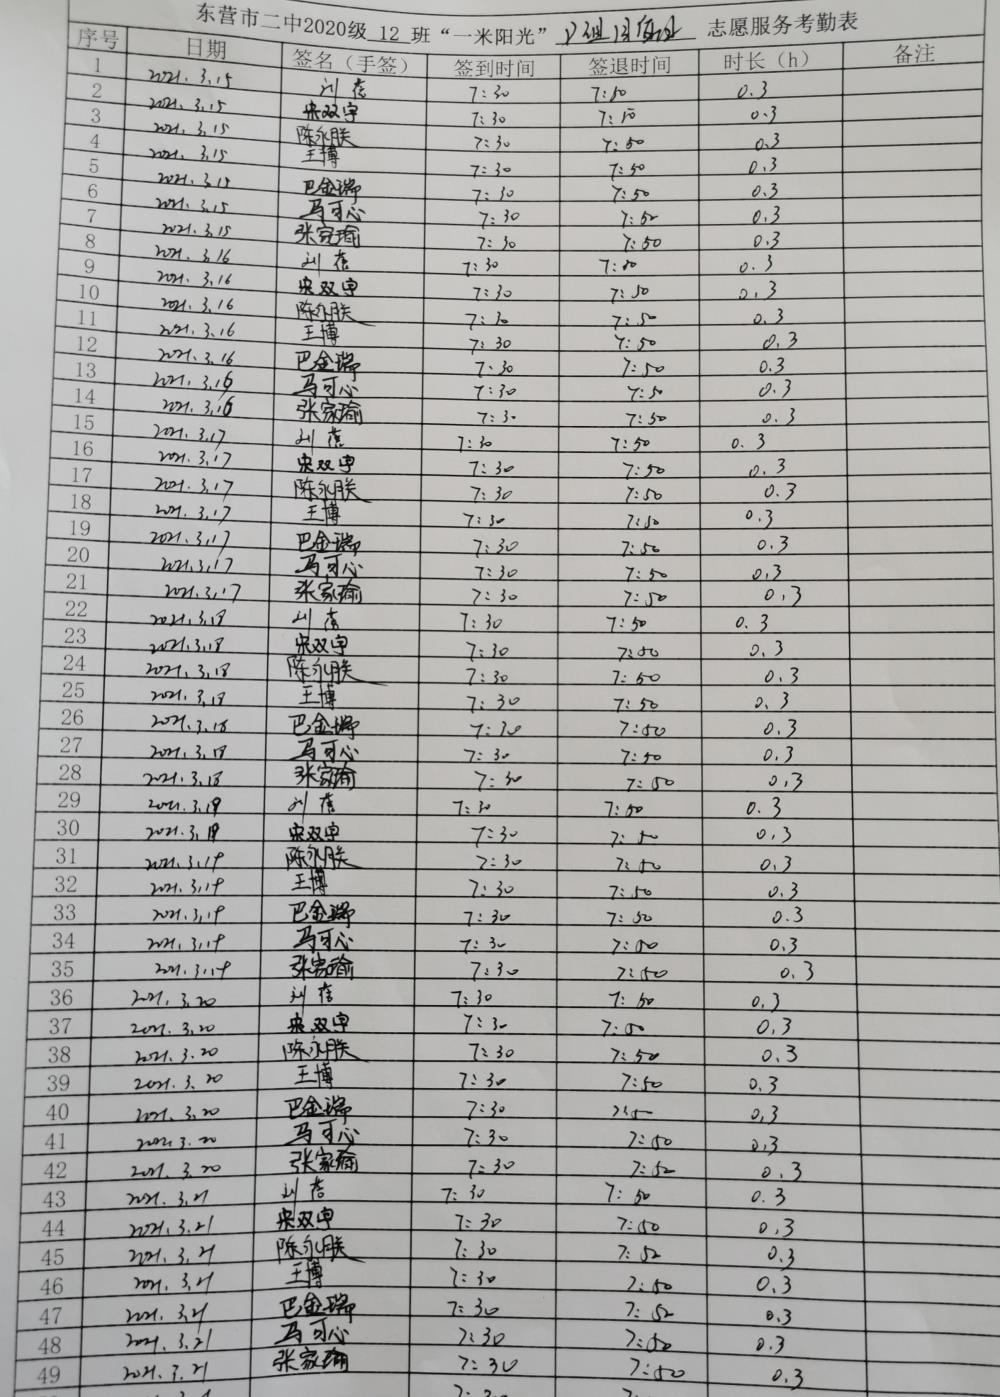 东营市二中2020级 12 班“一米阳光” 志愿服务考勤表
序号 日期 签名（手签） 签到时间 签退时间 时长（h） 备注
1 2021.3.15 刘蓓 7:30 7:50 0.3
2 2021.3.15 宋双宇 7:30 7:50 0.3
3 2021.3.15 陈永朕 7:30 7:50 0.3
4 2021.3.15 王博 7:30 7:50 0.3
5 2021.3.15 巴金瑞 7:30 7:50 0.3
6 2021.3.15 马可心 7:30 7:50 0.3
7 2021.3.15 张家瑜 7:30 7:50 0.3
8 2021.3.16 刘蓓 7:30 7:50 0.3
9 2021.3.16 宋双宇 7:30 7:50 0.3
10 2021.3.16 陈永朕 7:30 7:50 0.3
11 2021.3.16 王博 7:30 7:50 0.3
12 2021.3.16 巴金瑞 7:30 7:50 0.3
13 2021.3.16 马可心 7:30 7:50 0.3
14 2021.3.16 张家瑜 7:30 7:50 0.3
15 2021.3.17 刘蓓 7:30 7:50 0.3
16 2021.3.17 宋双宇 7:30 7:50 0.3
17 2021.3.17 陈永朕 7:30 7:50 0.3
18 2021.3.17 王博 7:30 7:50 0.3
19 2021.3.17 巴金瑞 7:30 7:50 0.3
20 2021.3.17 马可心 7:30 7:50 0.3
21 2021.3.17 张家瑜 7:30 7:50 0.3
22 2021.3.18 刘蓓 7:30 7:50 0.3
23 2021.3.18 宋双宇 7:30 7:50 0.3
24 2021.3.18 陈永朕 7:30 7:50 0.3
25 2021.3.18 王博 7:30 7:50 0.3
26 2021.3.18 巴金瑞 7:30 7:50 0.3
27 2021.3.18 马可心 7:30 7:50 0.3
28 2021.3.18 张家瑜 7:30 7:50 0.3
29 2021.3.19 刘蓓 7:30 7:50 0.3
30 2021.3.19 宋双宇 7:30 7:50 0.3
31 2021.3.19 陈永朕 7:30 7:50 0.3
32 2021.3.19 王博 7:30 7:50 0.3
33 2021.3.19 巴金瑞 7:30 7:50 0.3
34 2021.3.19 马可心 7:30 7:50 0.3
35 2021.3.19 张家瑜 7:30 7:50 0.3
36 2021.3.20 刘蓓 7:30 7:50 0.3
37 2021.3.20 宋双宇 7:30 7:50 0.3
38 2021.3.20 陈永朕 7:30 7:50 0.3
39 2021.3.20 王博 7:30 7:50 0.3
40 2021.3.20 巴金瑞 7:30 7:50 0.3
41 2021.3.20 马可心 7:30 7:50 0.3
42 2021.3.20 张家瑜 7:30 7:50 0.3
43 2021.3.21 刘蓓 7:30 7:50 0.3
44 2021.3.21 宋双宇 7:30 7:50 0.3
45 2021.3.21 陈永朕 7:30 7:50 0.3
46 2021.3.21 王博 7:30 7:50 0.3
47 2021.3.21 巴金瑞 7:30 7:50 0.3
48 2021.3.21 马可心 7:30 7:50 0.3
49 2021.3.21 张家瑜 7:30 7:50 0.3